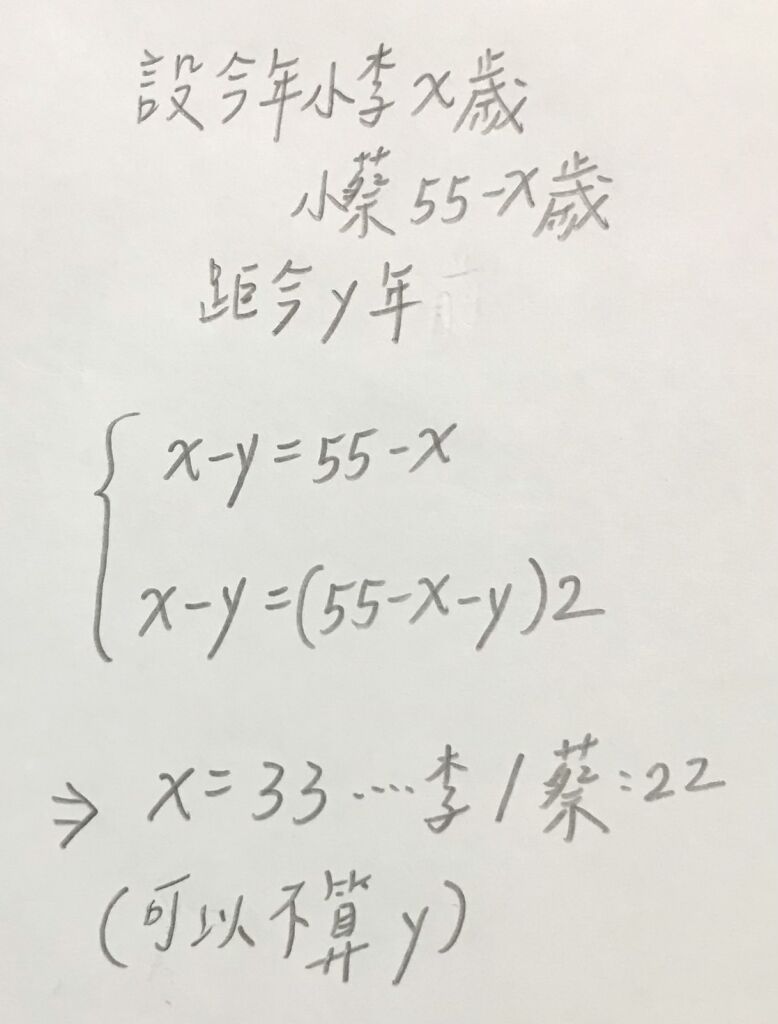 設今年小李x歲
小蔡55-x歲
距今y年
x-y=55-x
x-y=(55-x-y)2
⇒ x=33....李/蔡:22
(可以不算y)